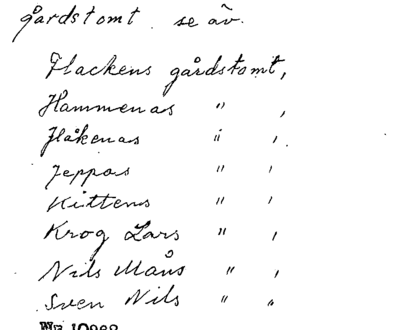 gårdstomt se äv.
Flackens gårdstomt,
Hammenas " ,
Håkenas " ,
Jeppas " ,
Kittens " ,
Krog Lars " ,
Nils Måns " ,
Sven Nils " "